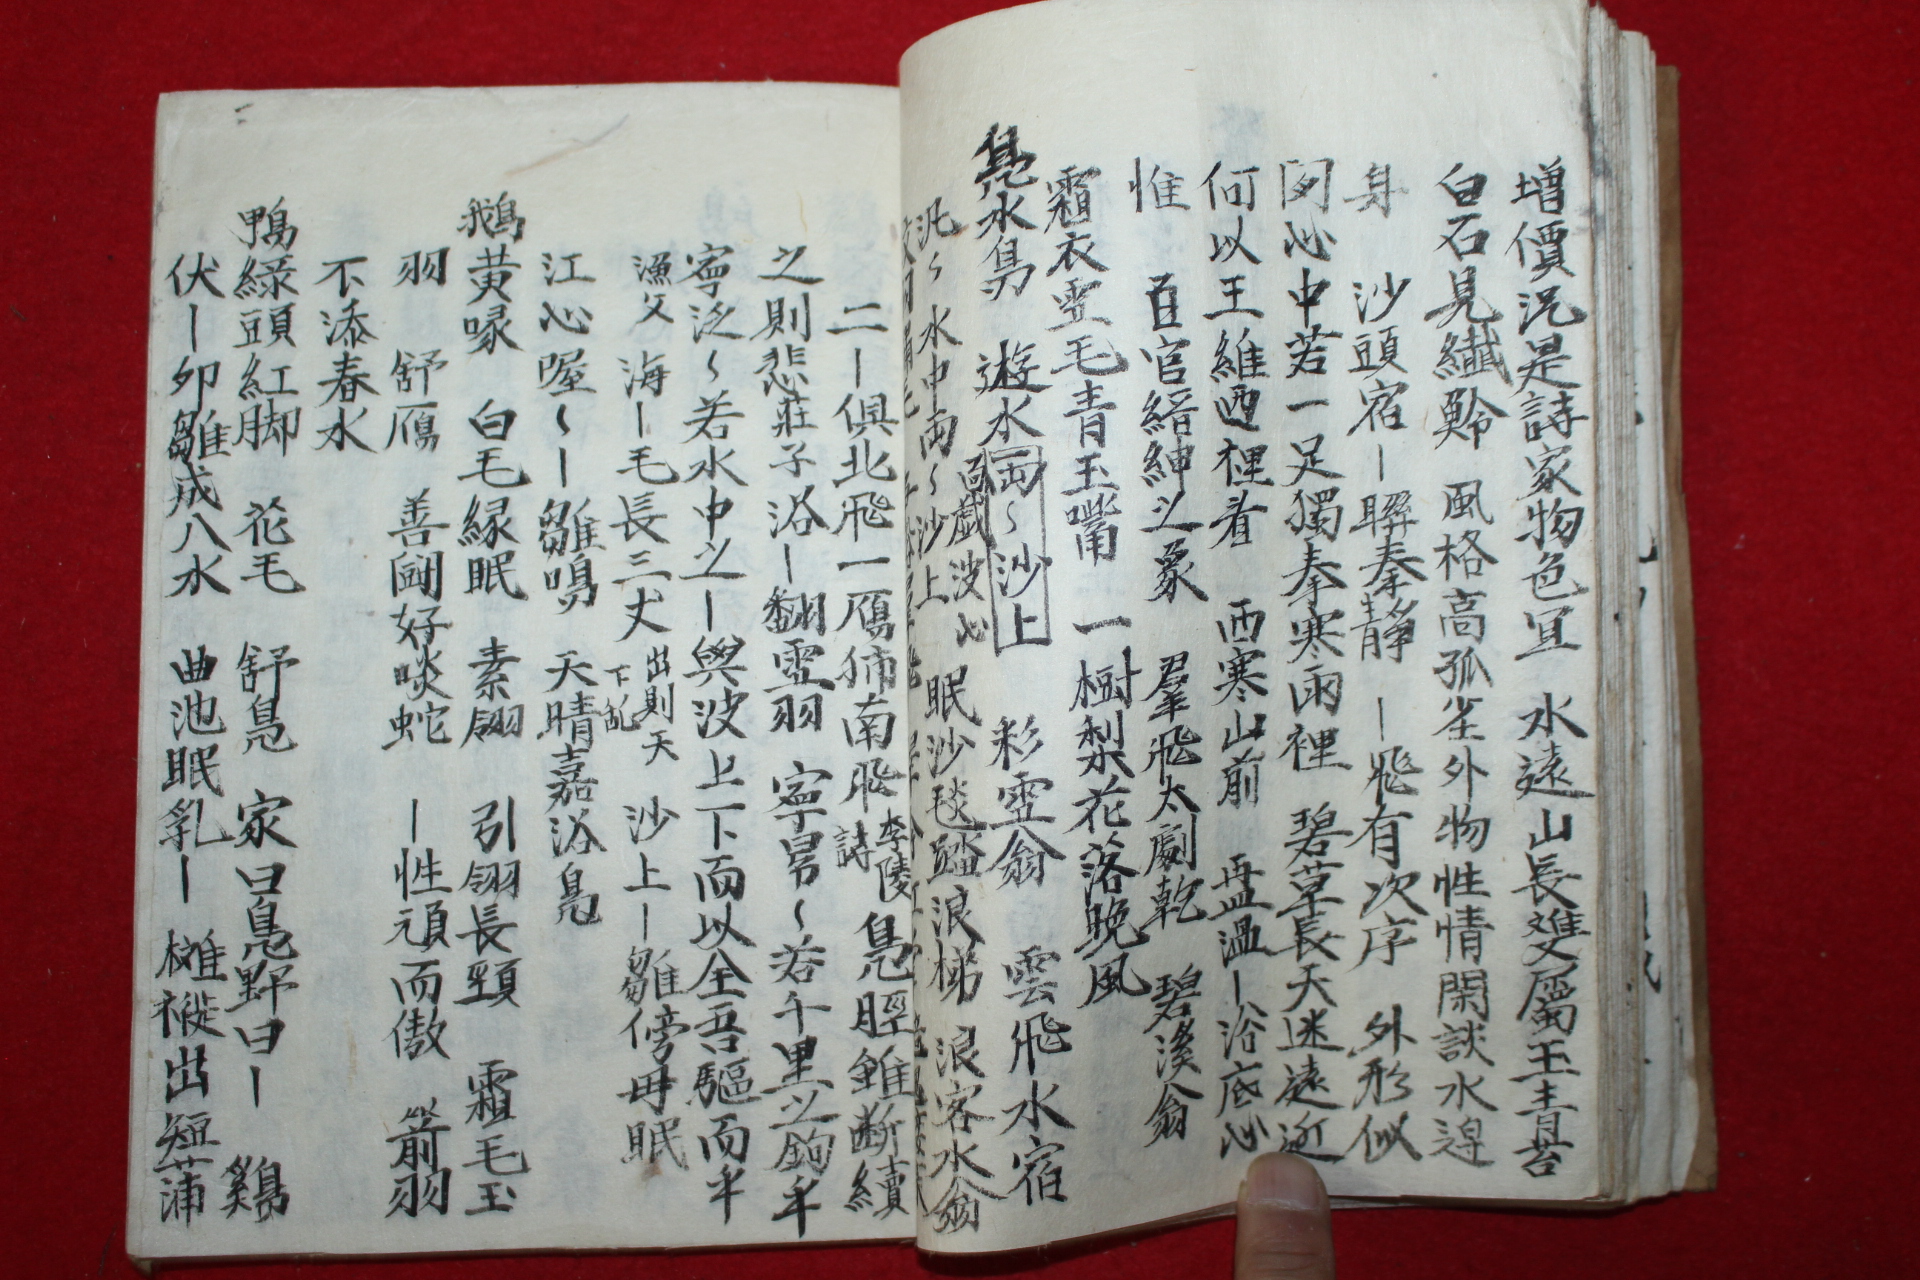 增價況是詩家物色宜 水遠山長雙屬玉青苔
白石見纖鱗 風格高孤雀外物性情閑談水邊
身 沙頭宿〡聯拳靜 〡飛有次序 外形似
閑心中若一足獨拳寒雨裡 碧草長天迷遠近
何以王維西裡看 西寒山前 再溫〡浴底心
惟 百官縉紳之象 羣飛太劇乾 碧溪翁
霜衣雪毛青玉嘴 一樹梨花落晚風
鳧水鳥 遊水両〻沙上 彩雪翁 雲飛水宿
百戲波心
汎〻水中両〻沙上 眠沙毯踏浪梯 浪客水翁
二〡俱北飛一鴈獨南飛 李陵詩 鳧脛雖斷續
之則悲莊子浴〡翻雪羽 寧昂〻若千里之駒乎
寧泛〻若水中之〡與波上下而以全吾軀而乎
漁父 海〡毛長三丈 出則天下亂 沙上〡雛傍母眠
江心喔〻〡雛鳴 天晴嘉浴鳧
鵝黃喙 白毛緑眠 素翎 引翎長頸 霜毛玉
羽 舒鴈 善鬪好啖蛇 〡性頑而傲 箭羽
不添春水
鴨綠頭紅脚 花毛 舒鳧 家曰鳧野曰〡 鷄
伏〡卵雛成入水 曲池眠乳〡 離褷出短蒲